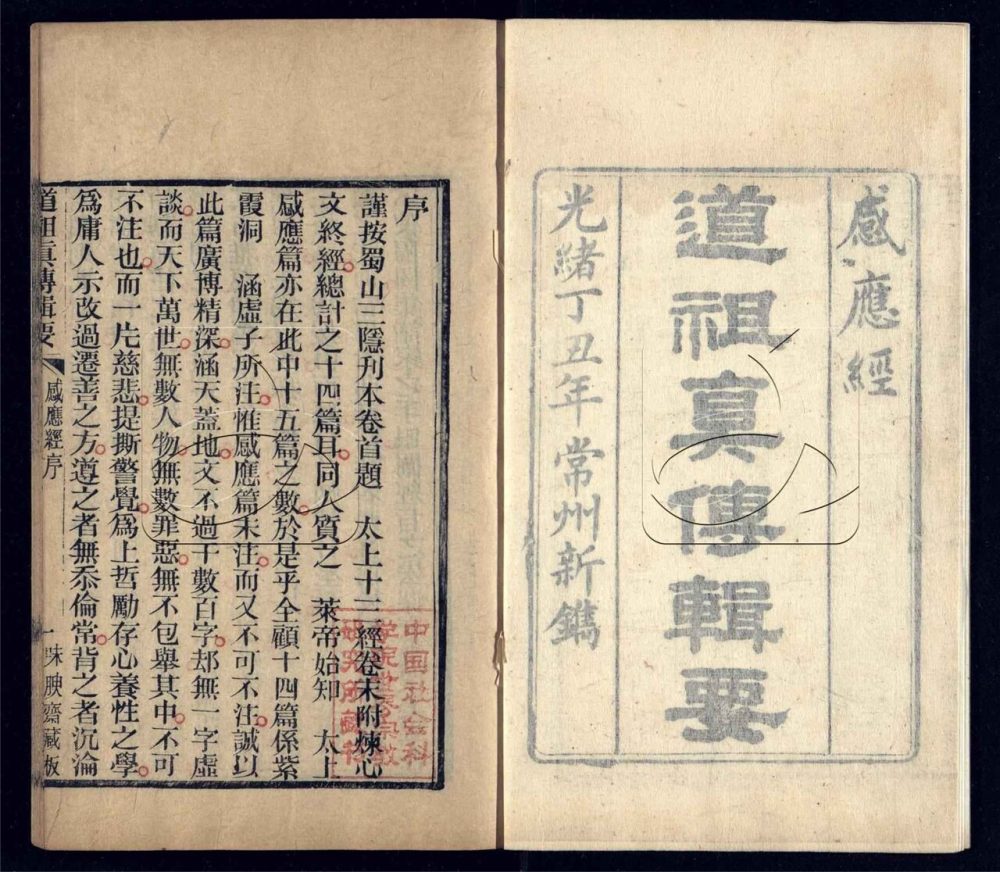 感應經
道祖真傳輯要
光緒丁丑年常州新鐫
序
謹按蜀山三隱刋本卷首題　太上十三經卷末附煉心
文終經總計之十四篇耳同人質之　萊帝始知　太上
感應篇亦在此中十五篇之數於是乎全顧十四篇係紫
霞洞　涵虛子所注惟感應篇未注而又不可不注誠以
此篇廣博精深涵天蓋地文不過十數百字却無一字虛
談而天下萬世無數人物無數罪惡無不包舉其中不可
不注也而一片慈悲提撕警覺爲上哲勵存心養性之學
爲庸人示改過遷善之方導之者無忝倫常背之者沉淪
道祖眞傳輯要　感應經序　一　味腴齋藏板
中国社会科
学院世界宗教
研究所藏书